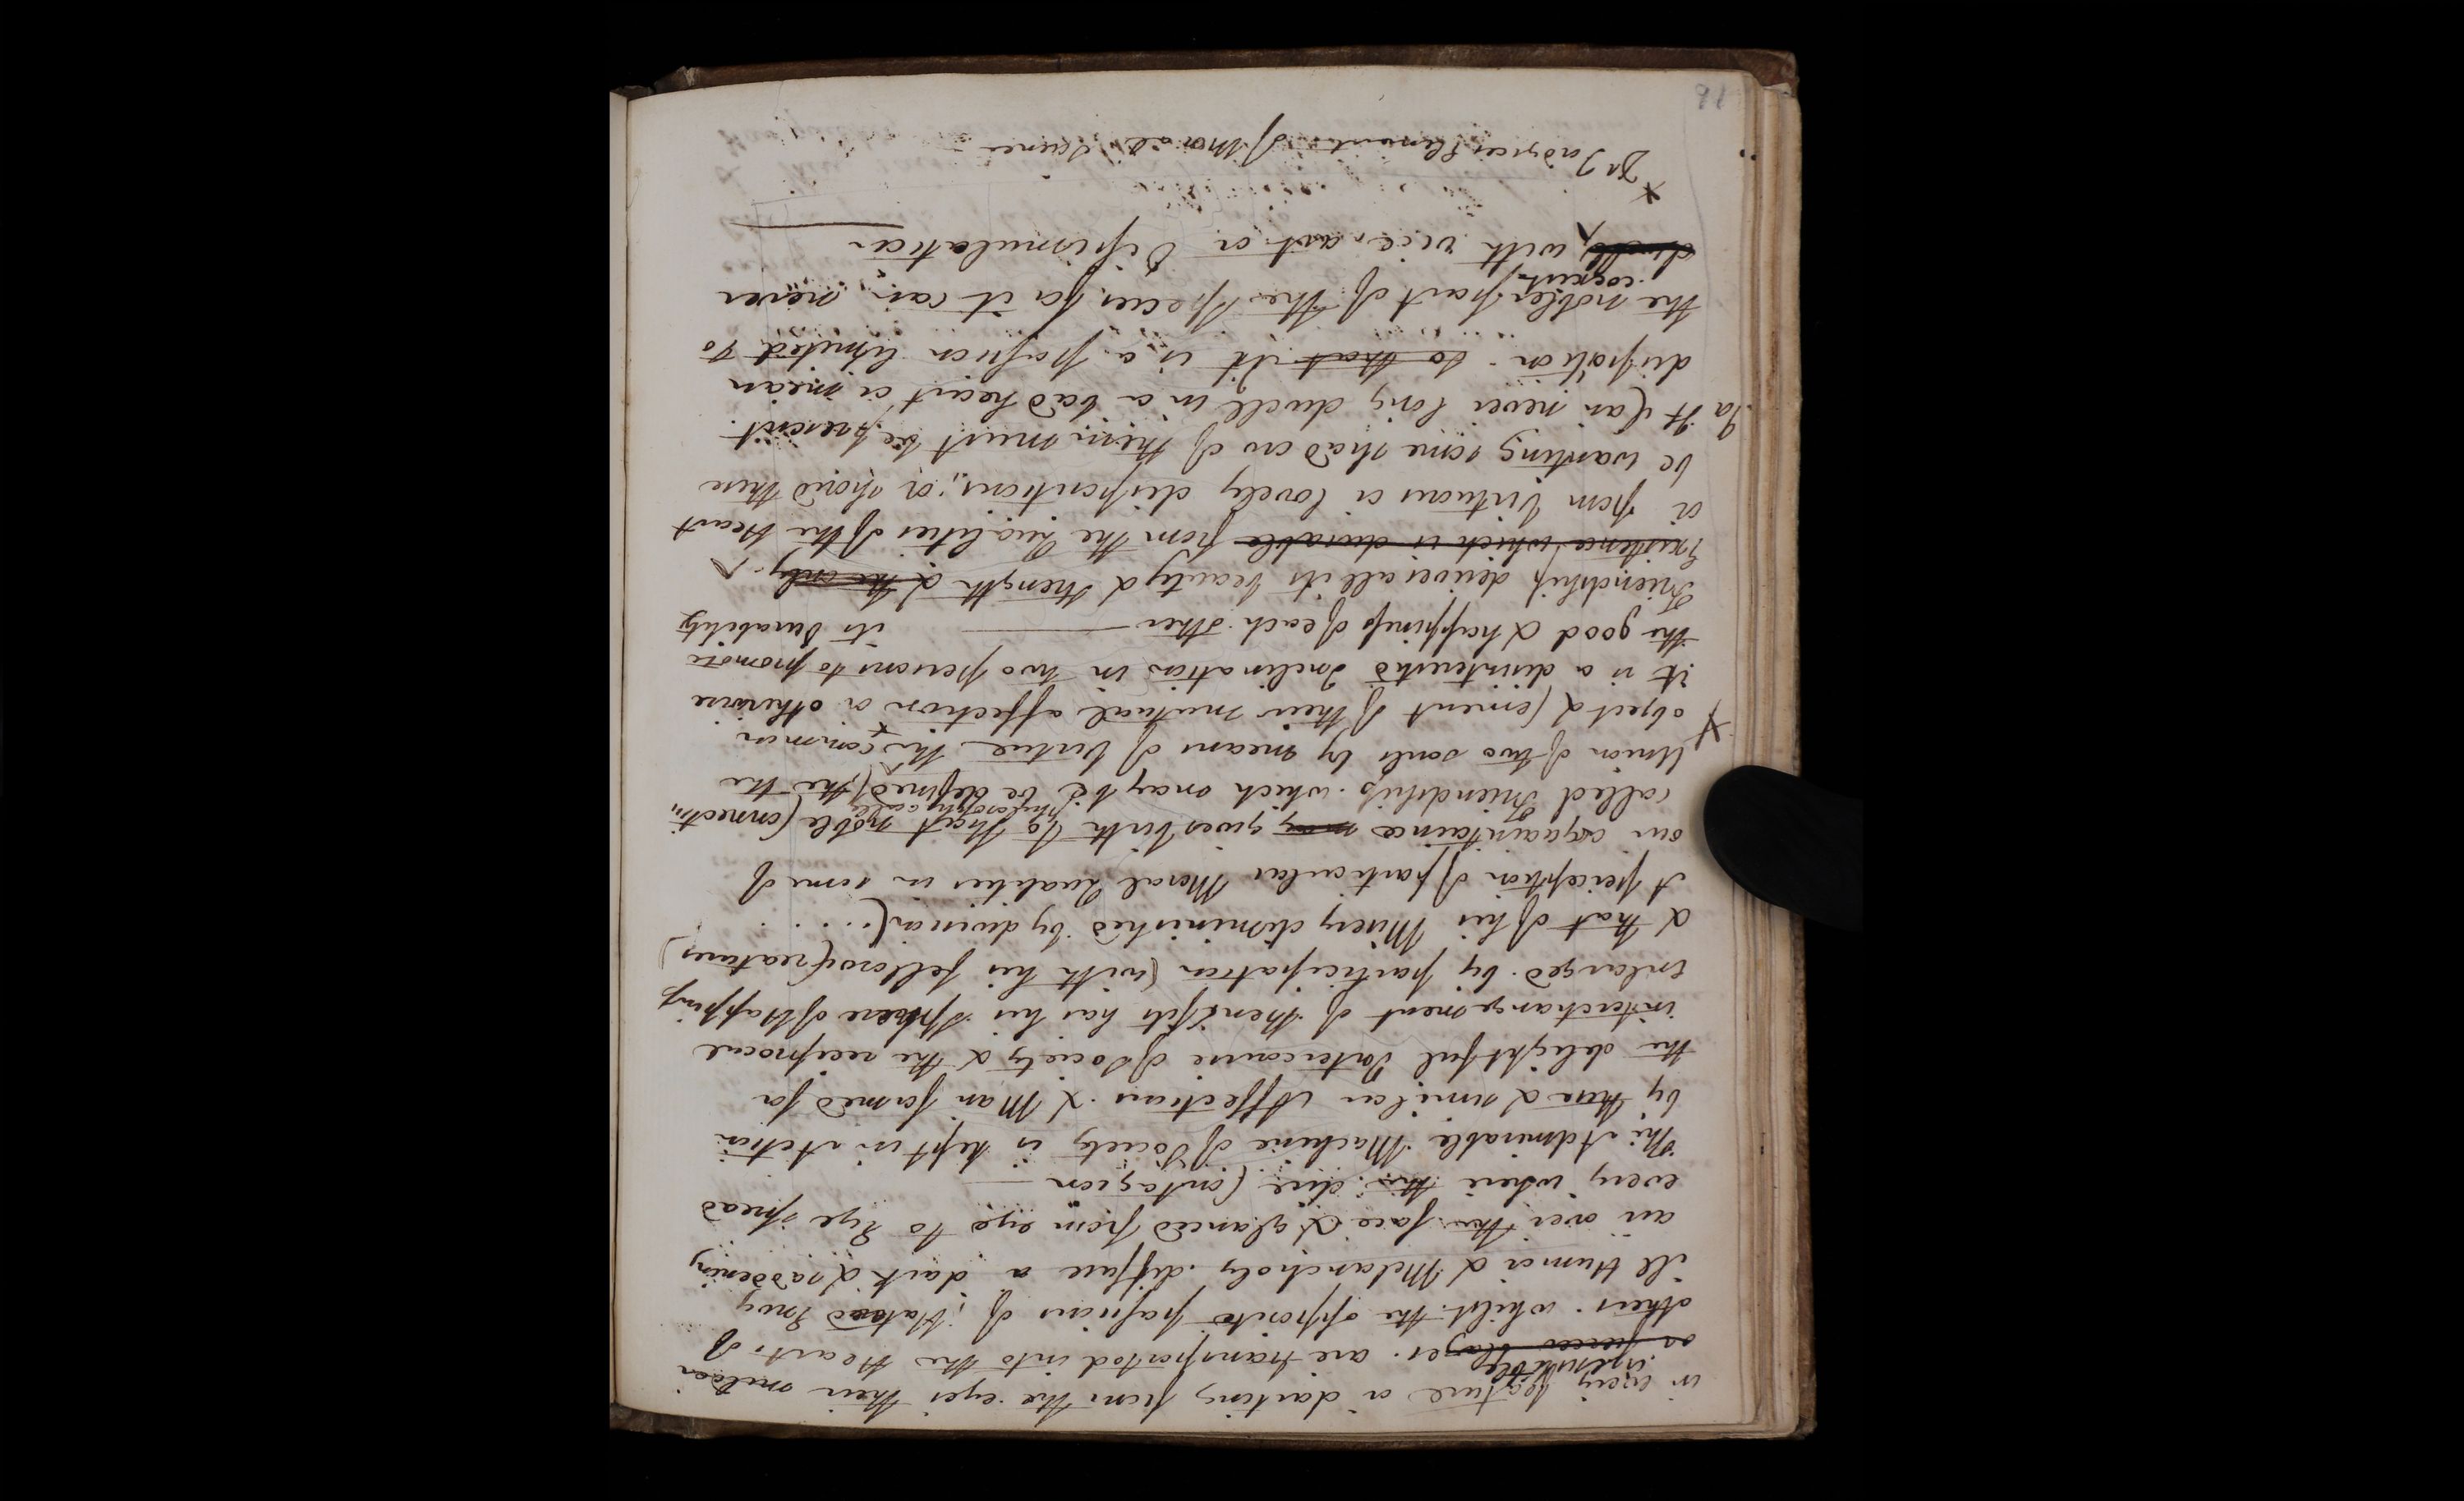 in every feature or darting from the eyes their milder
irresistible
or fiercer blazes. are transported into the Hearts of
others. whilst the opposite passions of, Hatred Envy
ill Humor & Melancholy diffuse a dark & saddening
air over the face & glanced from eye to Eye spread
every where the dire Contagion —
The Admirable Machine of Society is kept in Action
by these & similar Affections. & Man formed for
the delightful Intercourse of Society & the reciprocal
interchangement of Benefits has his Sphere of Happiness
enlarged by participation (with his fellow Creatures)
& that of his Misery diminished by division (. . . . .
A perception of particular Moral Qualities in some of
our acquaintance may gives birth to that noble Connecti"
philosophically
called Friendship. which may be be defined, the the
Union of two souls by means of Virtue the common
x object & Cement of their mutual affection or otherwise
it is a disinterested Inclination in two persons to promote
the good & happiness of each other — its Durability
Friendship derives all its beauty & strength & the only ^
Existence which is durable from the Qualities of the Heart
or from Virtuous or lovely dispositions; or shoud these
be wanting some shadow of them must be present.
It Can never long dwell in a bad heart or mean
disposition. to that It is a passion limited to
the nobler part of the Species for it can never
coexist
dwell ^ with vice, art or Dissimulation
x
Dr Fordyces Elements of Moral Science —
91